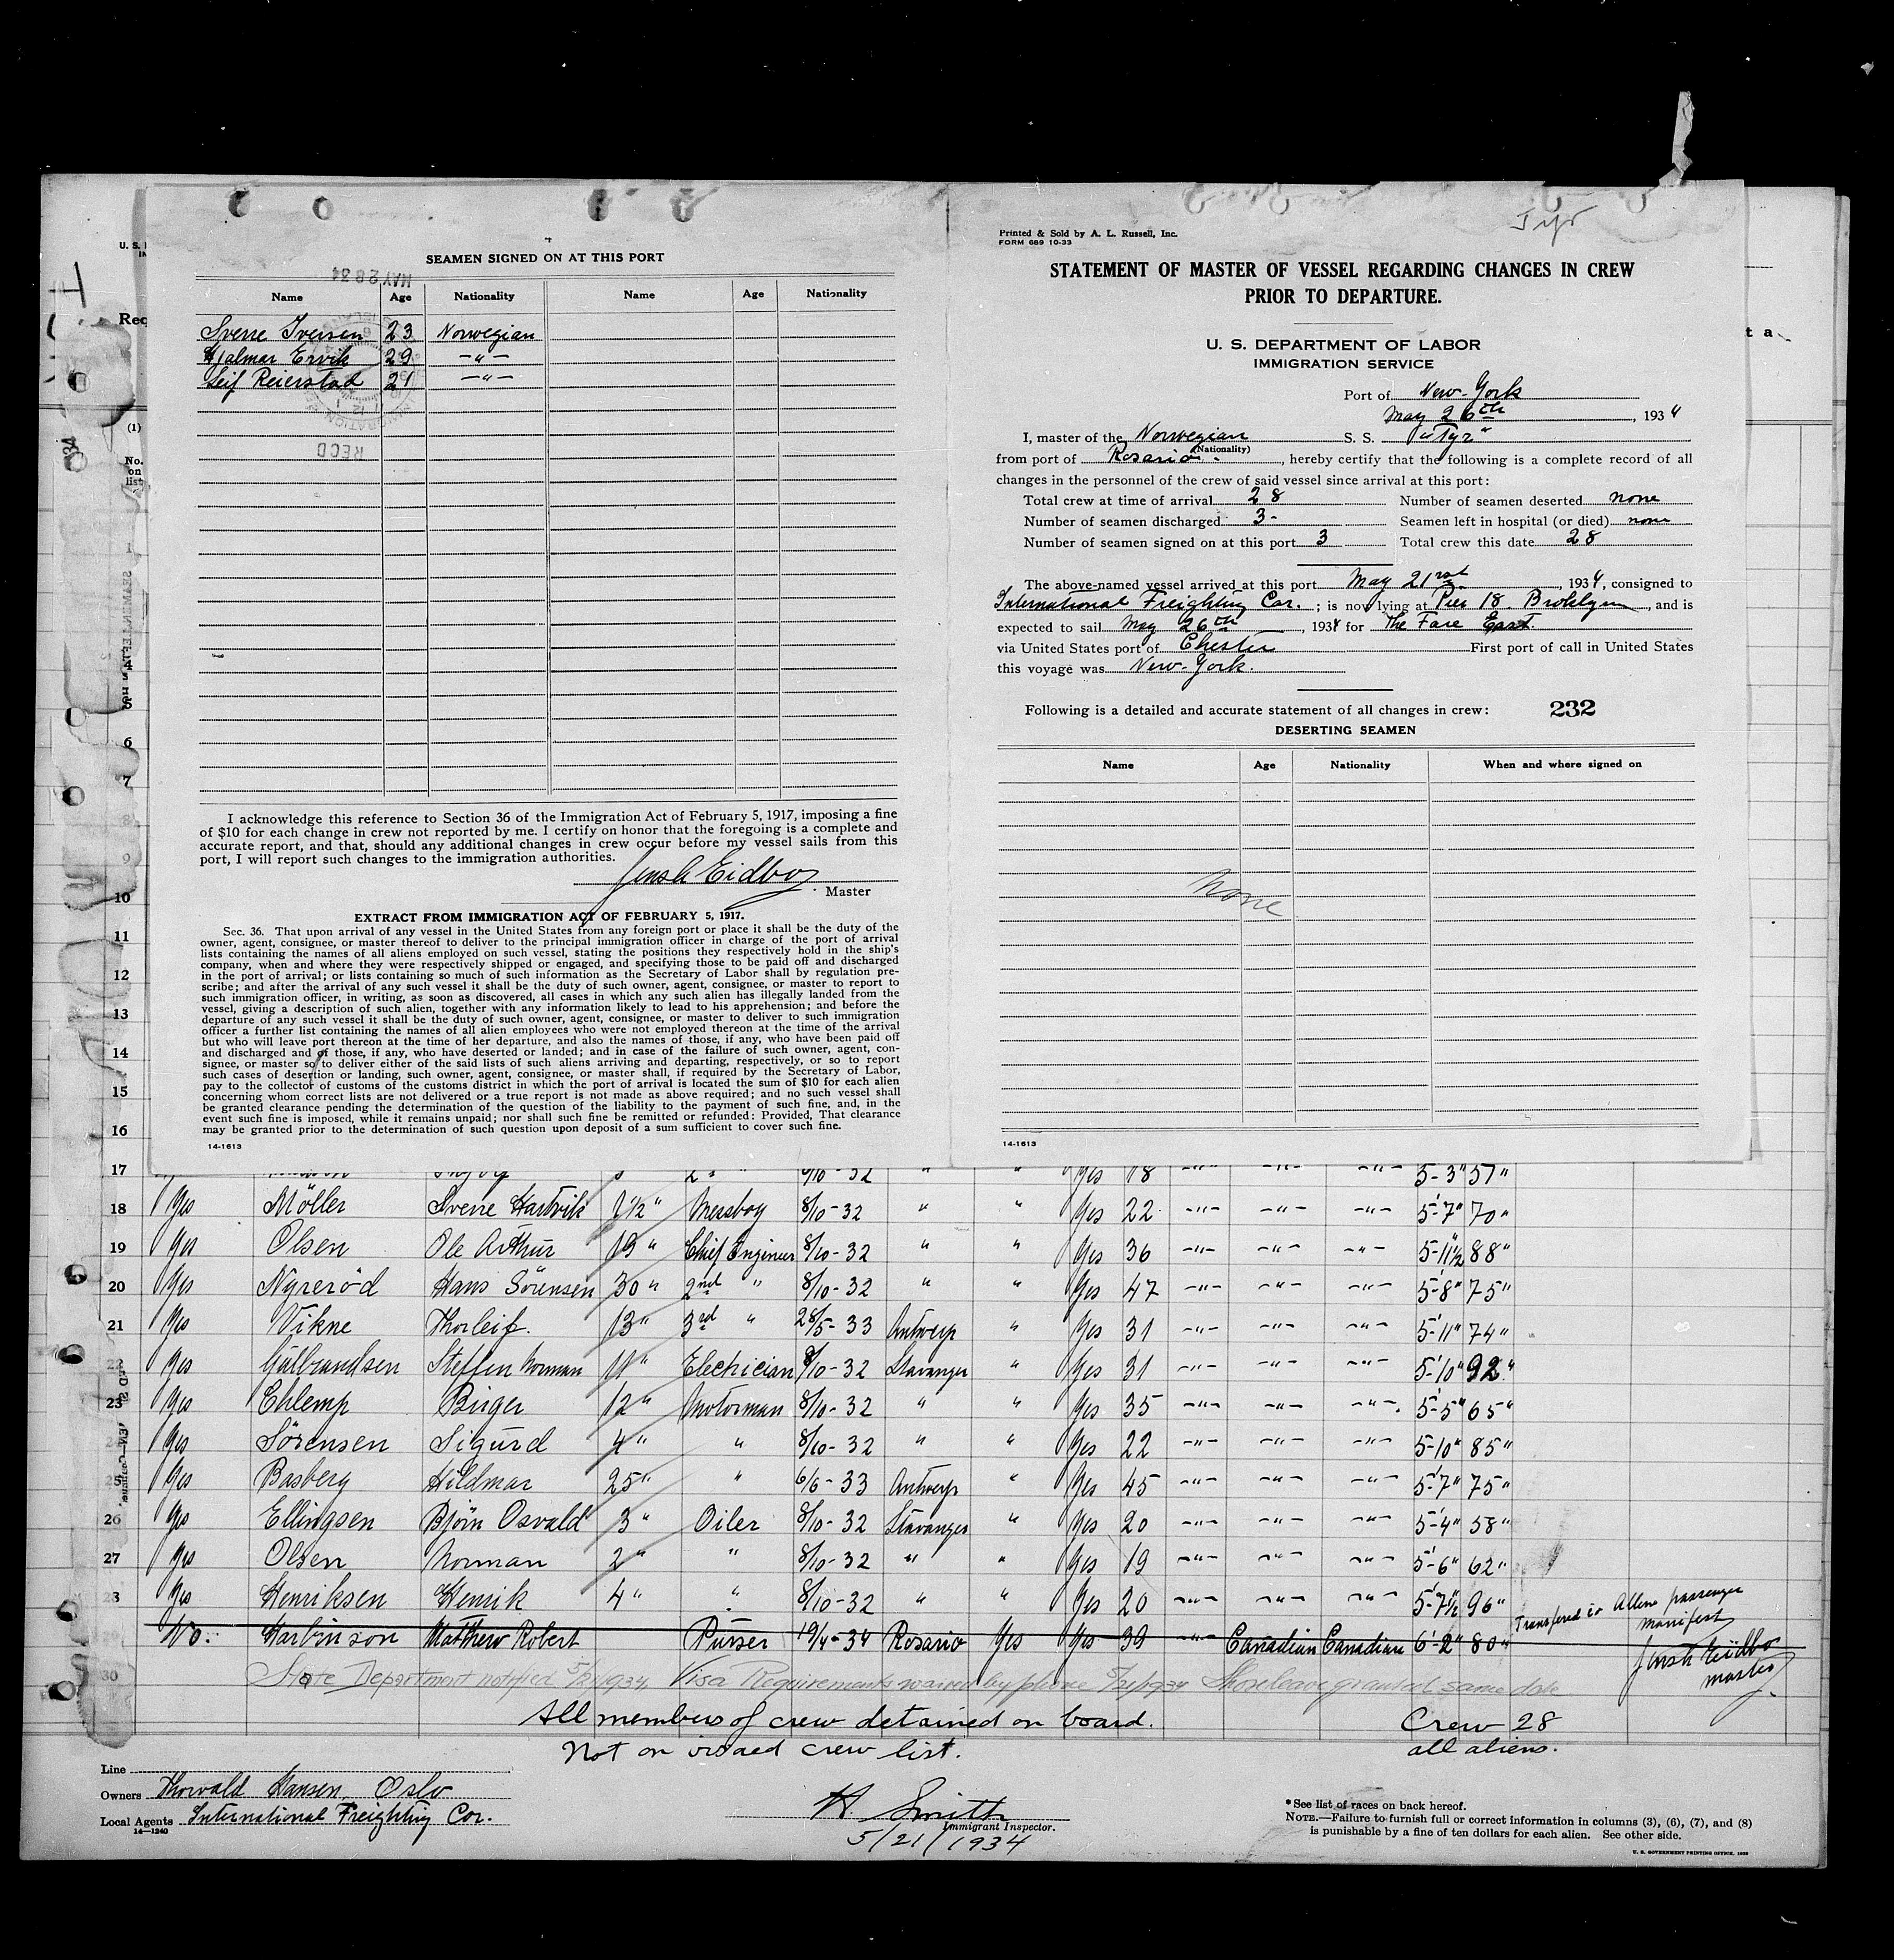 SEAMEN SIGNED ON AT THIS PORT
MAY 28 34
Name Age Nationality Name Age Nationality
Sverre Iversen 23 Norwegian
Hjalmar Ervik 29 -"-
Leif Reierstad 21 -"-
RECD
I acknowledge this reference to Section 36 of the Immigration Act of February 5, 1917, imposing a fine
of $10 for each change in crew not reported by me. I certify on honor that the foregoing is a complete and
accurate report, and that, should any additional changes in crew occur before my vessel sails from this
port, I will report such changes to the immigration authorities.
Master
EXTRACT FROM IMMIGRATION ACT OF FEBRUARY 5, 1917.
Sec. 36. That upon arrival of any vessel in the United States from any foreign port or place it shall be the duty of the
owner, agent, consignee, or master thereof to deliver to the principal immigration officer in charge of the port of arrival
lists containing the names of all aliens employed on such vessel, stating the positions they respectively hold in the ship's
company, when and where they were respectively shipped or engaged, and specifying those to be paid off and discharged
in the port of arrival; or lists containing so much of such information as the Secretary of Labor shall by regulation pre-
scribe; and after the arrival of any such vessel it shall be the duty of such owner, agent, consignee, or master to report to
such immigration officer, in writing, as soon as discovered, all cases in which any such alien has illegally landed from the
vessel, giving a description of such alien, together with any information likely to lead to his apprehension; and before the
departure of any such vessel it shall be the duty of such owner, agent, consignee, or master to deliver to such immigration
officer a further list containing the names of all alien employees who were not employed thereon at the time of the arrival
but who will leave port thereon at the time of her departure, and also the names of those, if any, who have been paid off
and discharged and of those, if any, who have deserted or landed; and in case of the failure of such owner, agent, con-
signee, or master so to deliver either of the said lists of such aliens arriving and departing, respectively, or so to report
such cases of desertion or landing, such owner, agent, consignee, or master shall, if required by the Secretary of Labor,
pay to the collector of customs of the customs district in which the port of arrival is located the sum of $10 for each alien
concerning whom correct lists are not delivered or a true report is not made as above required; and no such vessel shall
be granted clearance pending the determination of the question of the liability to the payment of such fine, and, in the
event such fine is imposed, while it remains unpaid; nor shall such fine be remitted or refunded: Provided, That clearance
may be granted prior to the determination of such question upon deposit of a sum sufficient to cover such fine.
14-1613
Tyr
Printed & Sold by A. L. Russell, Inc.
FORM 689 10-33
STATEMENT OF MASTER OF VESSEL REGARDING CHANGES IN CREW
PRIOR TO DEPARTURE.
U. S. DEPARTMENT OF LABOR
IMMIGRATION SERVICE
Port of New-York
May 26th, 1934
I, master of the Norwegian S. S. "Tyr"
(Nationality)
from port of Rosario, hereby certify that the following is a complete record of all
changes in the personnel of the crew of said vessel since arrival at this port:
Total crew at time of arrival 28 Number of seamen deserted none
Number of seamen discharged 3- Seamen left in hospital (or died) none
Number of seamen signed on at this port 3 Total crew this date 28
The above-named vessel arrived at this port May 21rst, 1934, consigned to
International Freighting Cor.; is now lying at Pier 18 Broklyn, and is
expected to sail May 26th, 1934 for The Fare East.
via United States port of Chester First port of call in United States
this voyage was New-York.
Following is a detailed and accurate statement of all changes in crew: 232
DESERTING SEAMEN
Name Age Nationality When and where signed on
None
14-1613
U. S.
Rec
(1)
No.
on
list
4
5
6
7
8
9
10
11
12
13
14
15
16
17 2 " 8/10-32 " " Yes 18 -"- -"- -"- 5-3" 57"
18 Yes Möller Sverre Hartvik 1 1/2 " Messboy 8/10-32 " " Yes 22 -"- -"- -"- 5-7" 70"
19 Yes Olsen Ole Arthur 19 " Chief Engineer 8/10-32 " " Yes 36 -"- -"- -"- 5-11 1/2 88"
20 Yes Nyreröd Hans Sörensen 30 " 2nd " 8/10-32 " " Yes 47 -"- -"- -"- 5-8" 75"
21 Yes Vikne Thorleif. 13" 3rd " 28/5-33 Antwerp " Yes 31 -"- -"- -"- 5-11" 74"
22 Yes Gulbrandsen Steffen Norman 11" Electrician 8/10-32 Stavanger " Yes 31 -"- -"- -"- 5-10" 92"
23 Yes Ehlemp Birger 12" Motorman 8/10-32 " " Yes 35 -"- -"- -"- 5-5" 65"
24 Yes Sörensen Sigurd 4" " 8/10-32 " " Yes 22 -"- -"- -"- 5-10" 85"
25 Yes Basberg Hildmar 25" " 6/6-33 Antwerp " Yes 45 -"- -"- -"- 5-7" 75"
26 Yes Ellingsen Björn Osvald 3" Oiler 8/10-32 Stavanger " Yes 20 -"- -"- -"- 5-4" 58"
27 Yes Olsen Norman 2" " 8/10-32 " " Yes 19 -"- -"- -"- 5-6" 62"
28 Yes Henriksen Henrik 4" " 8/10-32 " " Yes 20 -"- -"- -"- 5-7 1/2 96"
Transfered to Aliens passenger
manifest
No. Harbinson Matthew Robert Purser 19/4-34 Rosario Yes Yes 39 -"- Canadian Canadian 6-2" 80"
master
30 State Department notified 5/21/1934 Visa Requirements waived by phone 5/21/1934 Shore leave granted same date
All members of crew detained on board. Crew 28
Not on visaed crew list. all aliens.
Line
Owners Thorvald Hansen, Oslo
Local Agents International Freighting Cor.
14-1240
H Smith
Immigrant Inspector.
5/21/1934
* See list of races on back hereof.
NOTE.—Failure to furnish full or correct information in columns (3), (6), (7), and (8)
is punishable by a fine of ten dollars for each alien. See other side.
U. S. GOVERNMENT PRINTING OFFICE